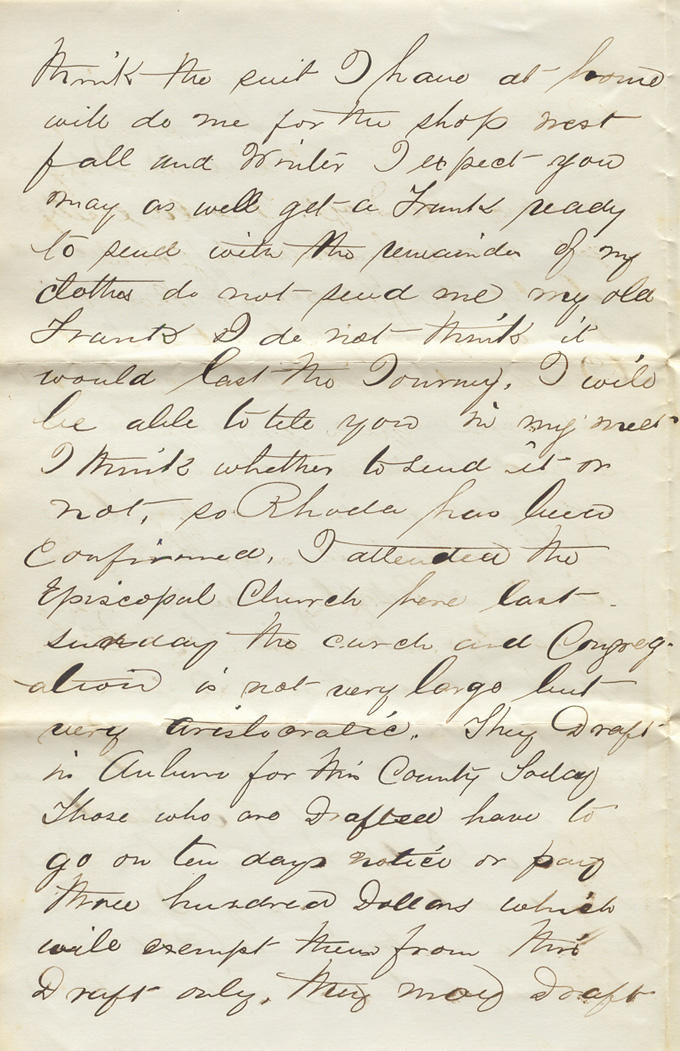 think the suit I have at home
will do me for the shop next
fall and Winter I expect you
may as well get a Trunk ready
to send with the remainder of my
clothes do not send me my old
Trunk I do not think it
would last the Journey. I will
be able to tell you in my next
I think whether to send it or
not, so Rhoda has been
Confirmed. I attended the
Episcopal Church here last
sunday the curch and Congreg-
-ation is not very large but
very aristocratic. They Draft
in Auburn for this County Today
Those who are Drafted have to
go on ten days notice or pay
three hundred Dollars which
will exempt them from this
Draft only, they may Draft